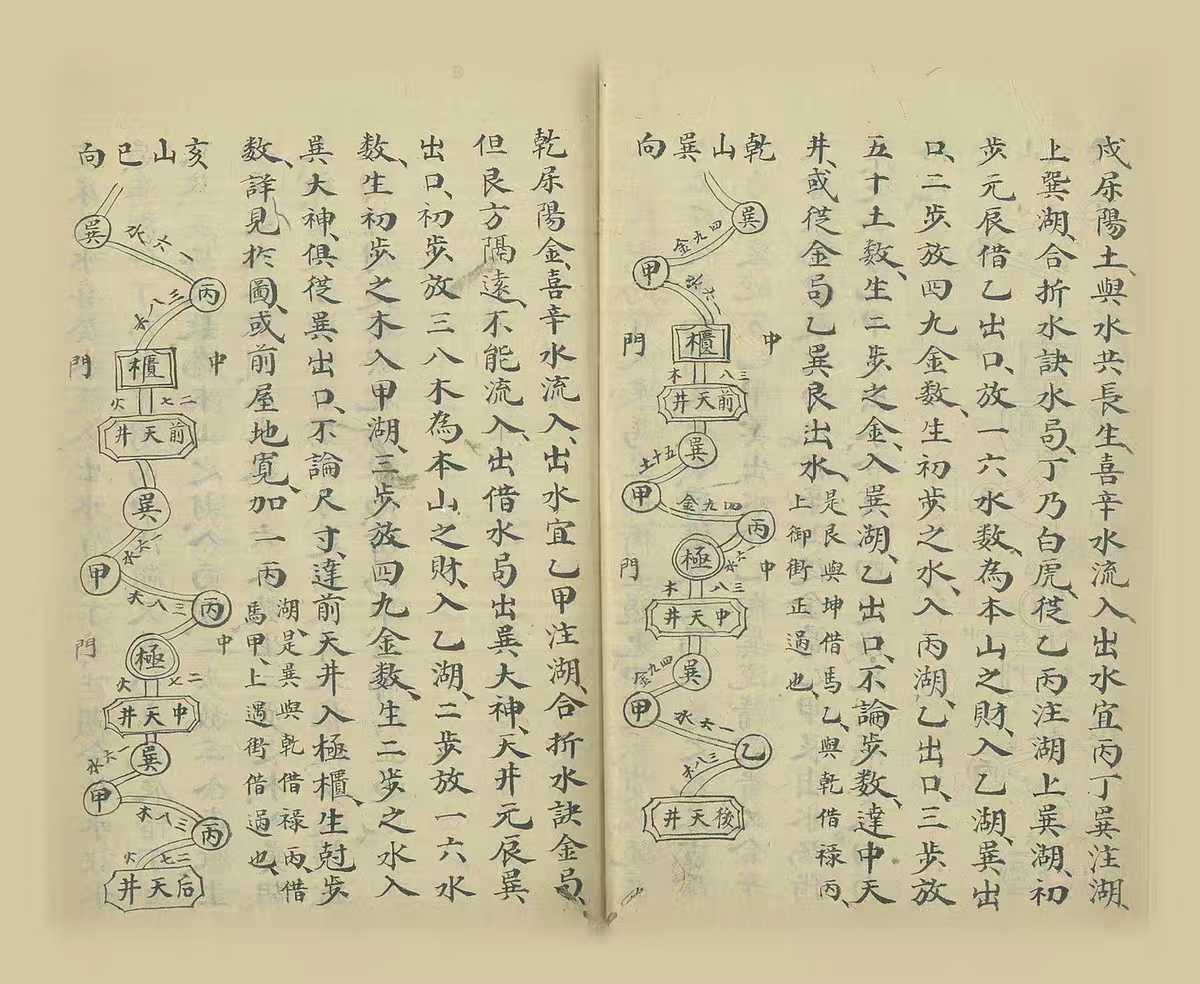 戊屎陽土、與水共長生、喜辛水流入、出水宜丙丁巽注湖、
上巽湖、合折水訣水局、丁乃白虎、從乙丙注湖上巽湖、初
步元辰借乙出口、放一六水数、為本山之財、入乙湖、巽出
口、二步放四九金数、生初步之水、入丙湖、乙出口、三步放
五十土数、生二步之金、入巽湖、乙出口、不論步数、達中天
井、或從金局乙巽艮出水
是艮與坤借馬乙、與乾借禄丙、
上御街正過也、
乾山巽向
巽
四九金
甲
一六水
櫃
中門
三八木
前天井
巽
五十土
甲
四九金
丙
一六水
極
中門
三八木
中天井
巽
四九金
甲
一六水
乙
三八木
後天井
乾屎陽金、喜辛水流入、出水宜乙甲注湖、合折水訣金局、
但艮方隔遠、不能流入、出借水局出巽大神、天井元辰巽
出口、初步放三八木為本山之財、入乙湖、二步放一六水
数、生初步之木入甲湖、三步放四九金数、生二步之水入
巽大神、俱從巽出口、不論尺寸、達前天井入極櫃、生尅步
数、詳見於圖、或前屋地寛、加一丙
湖、是巽與乾借禄丙、借
馬甲、上過街借過也、
亥山巳向
巽
一六水
丙
三八木
櫃
中門
二七火
前天井
巽
一六水
甲
三八木
丙
極
中門
二七火
中天井
巽
一六水
甲
三八木
丙
二七火
后天井